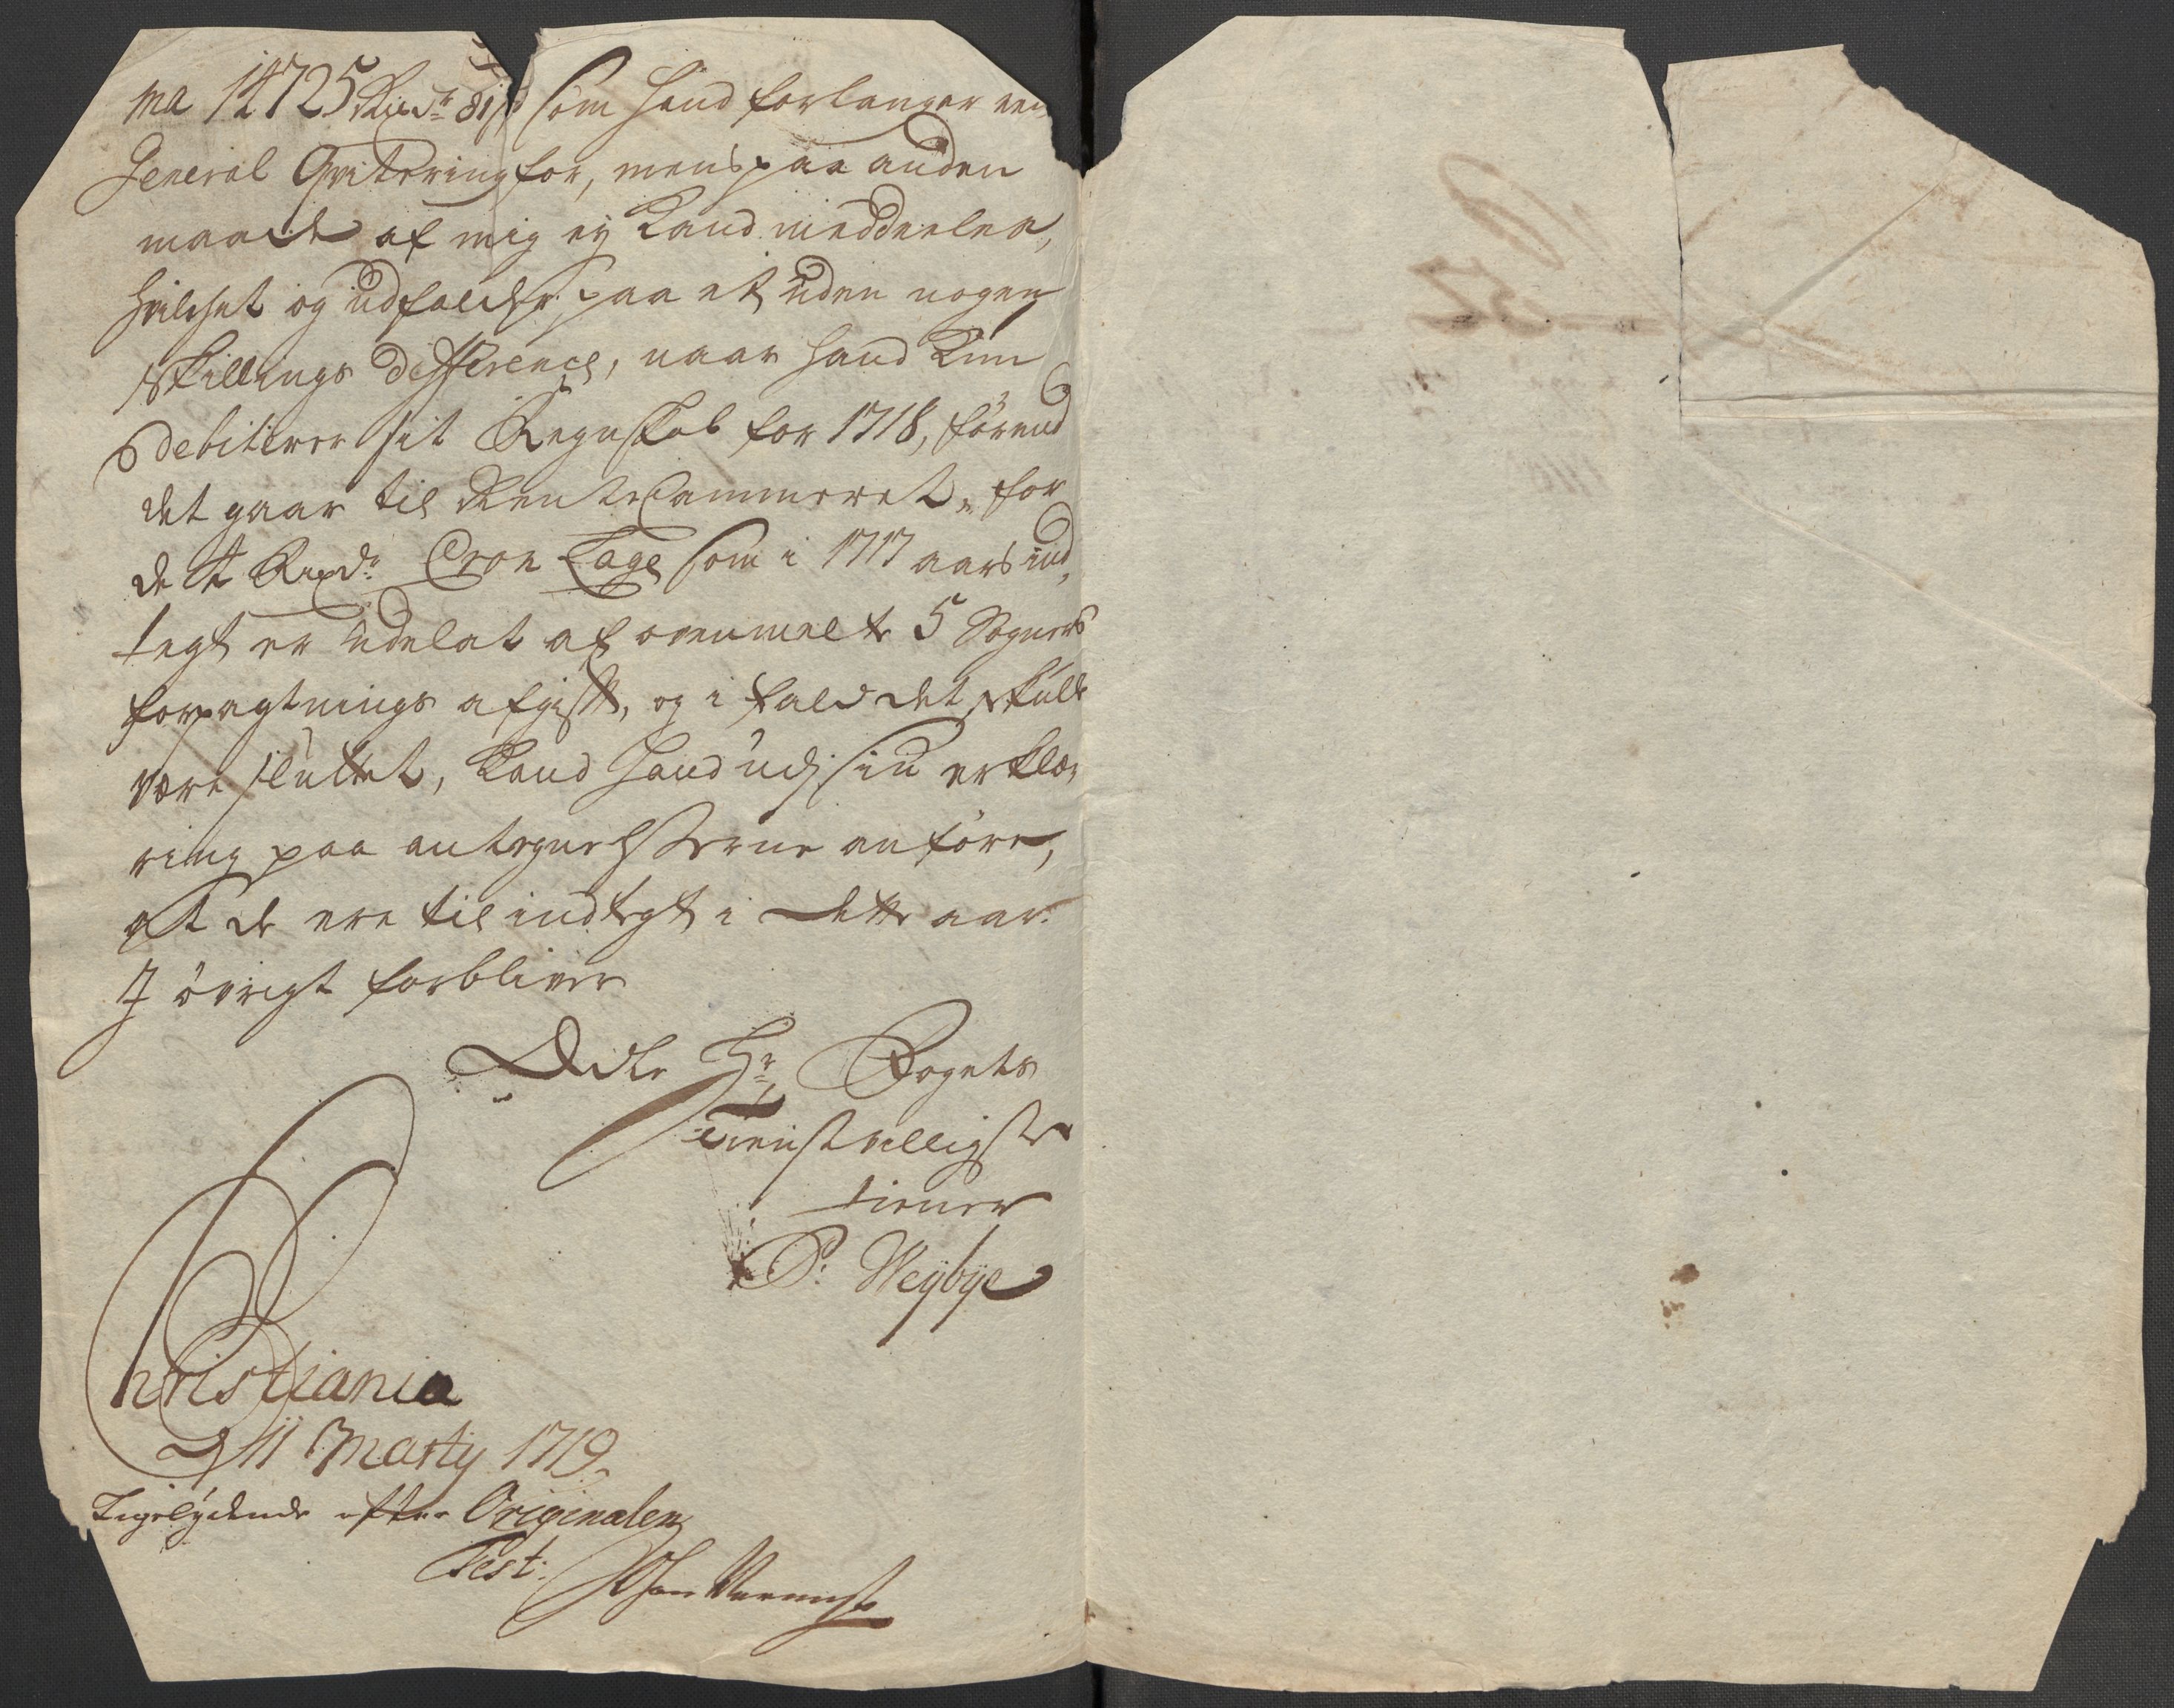 ma 14725 Rixdr 81 ß som hand forlanger een
General Qvitering for, mens paa anden
maade af mig ej kand meddeeles,
hvilchet og udfalder paa et uden nogen
skillings Defference, naar hand kun
debiterer sit Regnskab for 1718, förend
det gaar til Rentecammeret, for
de 4 Rixdr Cron Tage som i 1717 aars ind„
tegt er udelat af ovenmelte 5 Sogners
forpagtnings afgift, og i fald det skulle
være sluttet, kand hand udj sin erklæ„
ring paa antegnelsserne anföre,
at de ere til indtegt i dette aar.
J övrigt forbliver
Edle Hr Fogets
tienstvilligste
tiener
P: Weybye
Christiania
d 11 Marty 1719.
Ligelydende efter Originalen
Test: